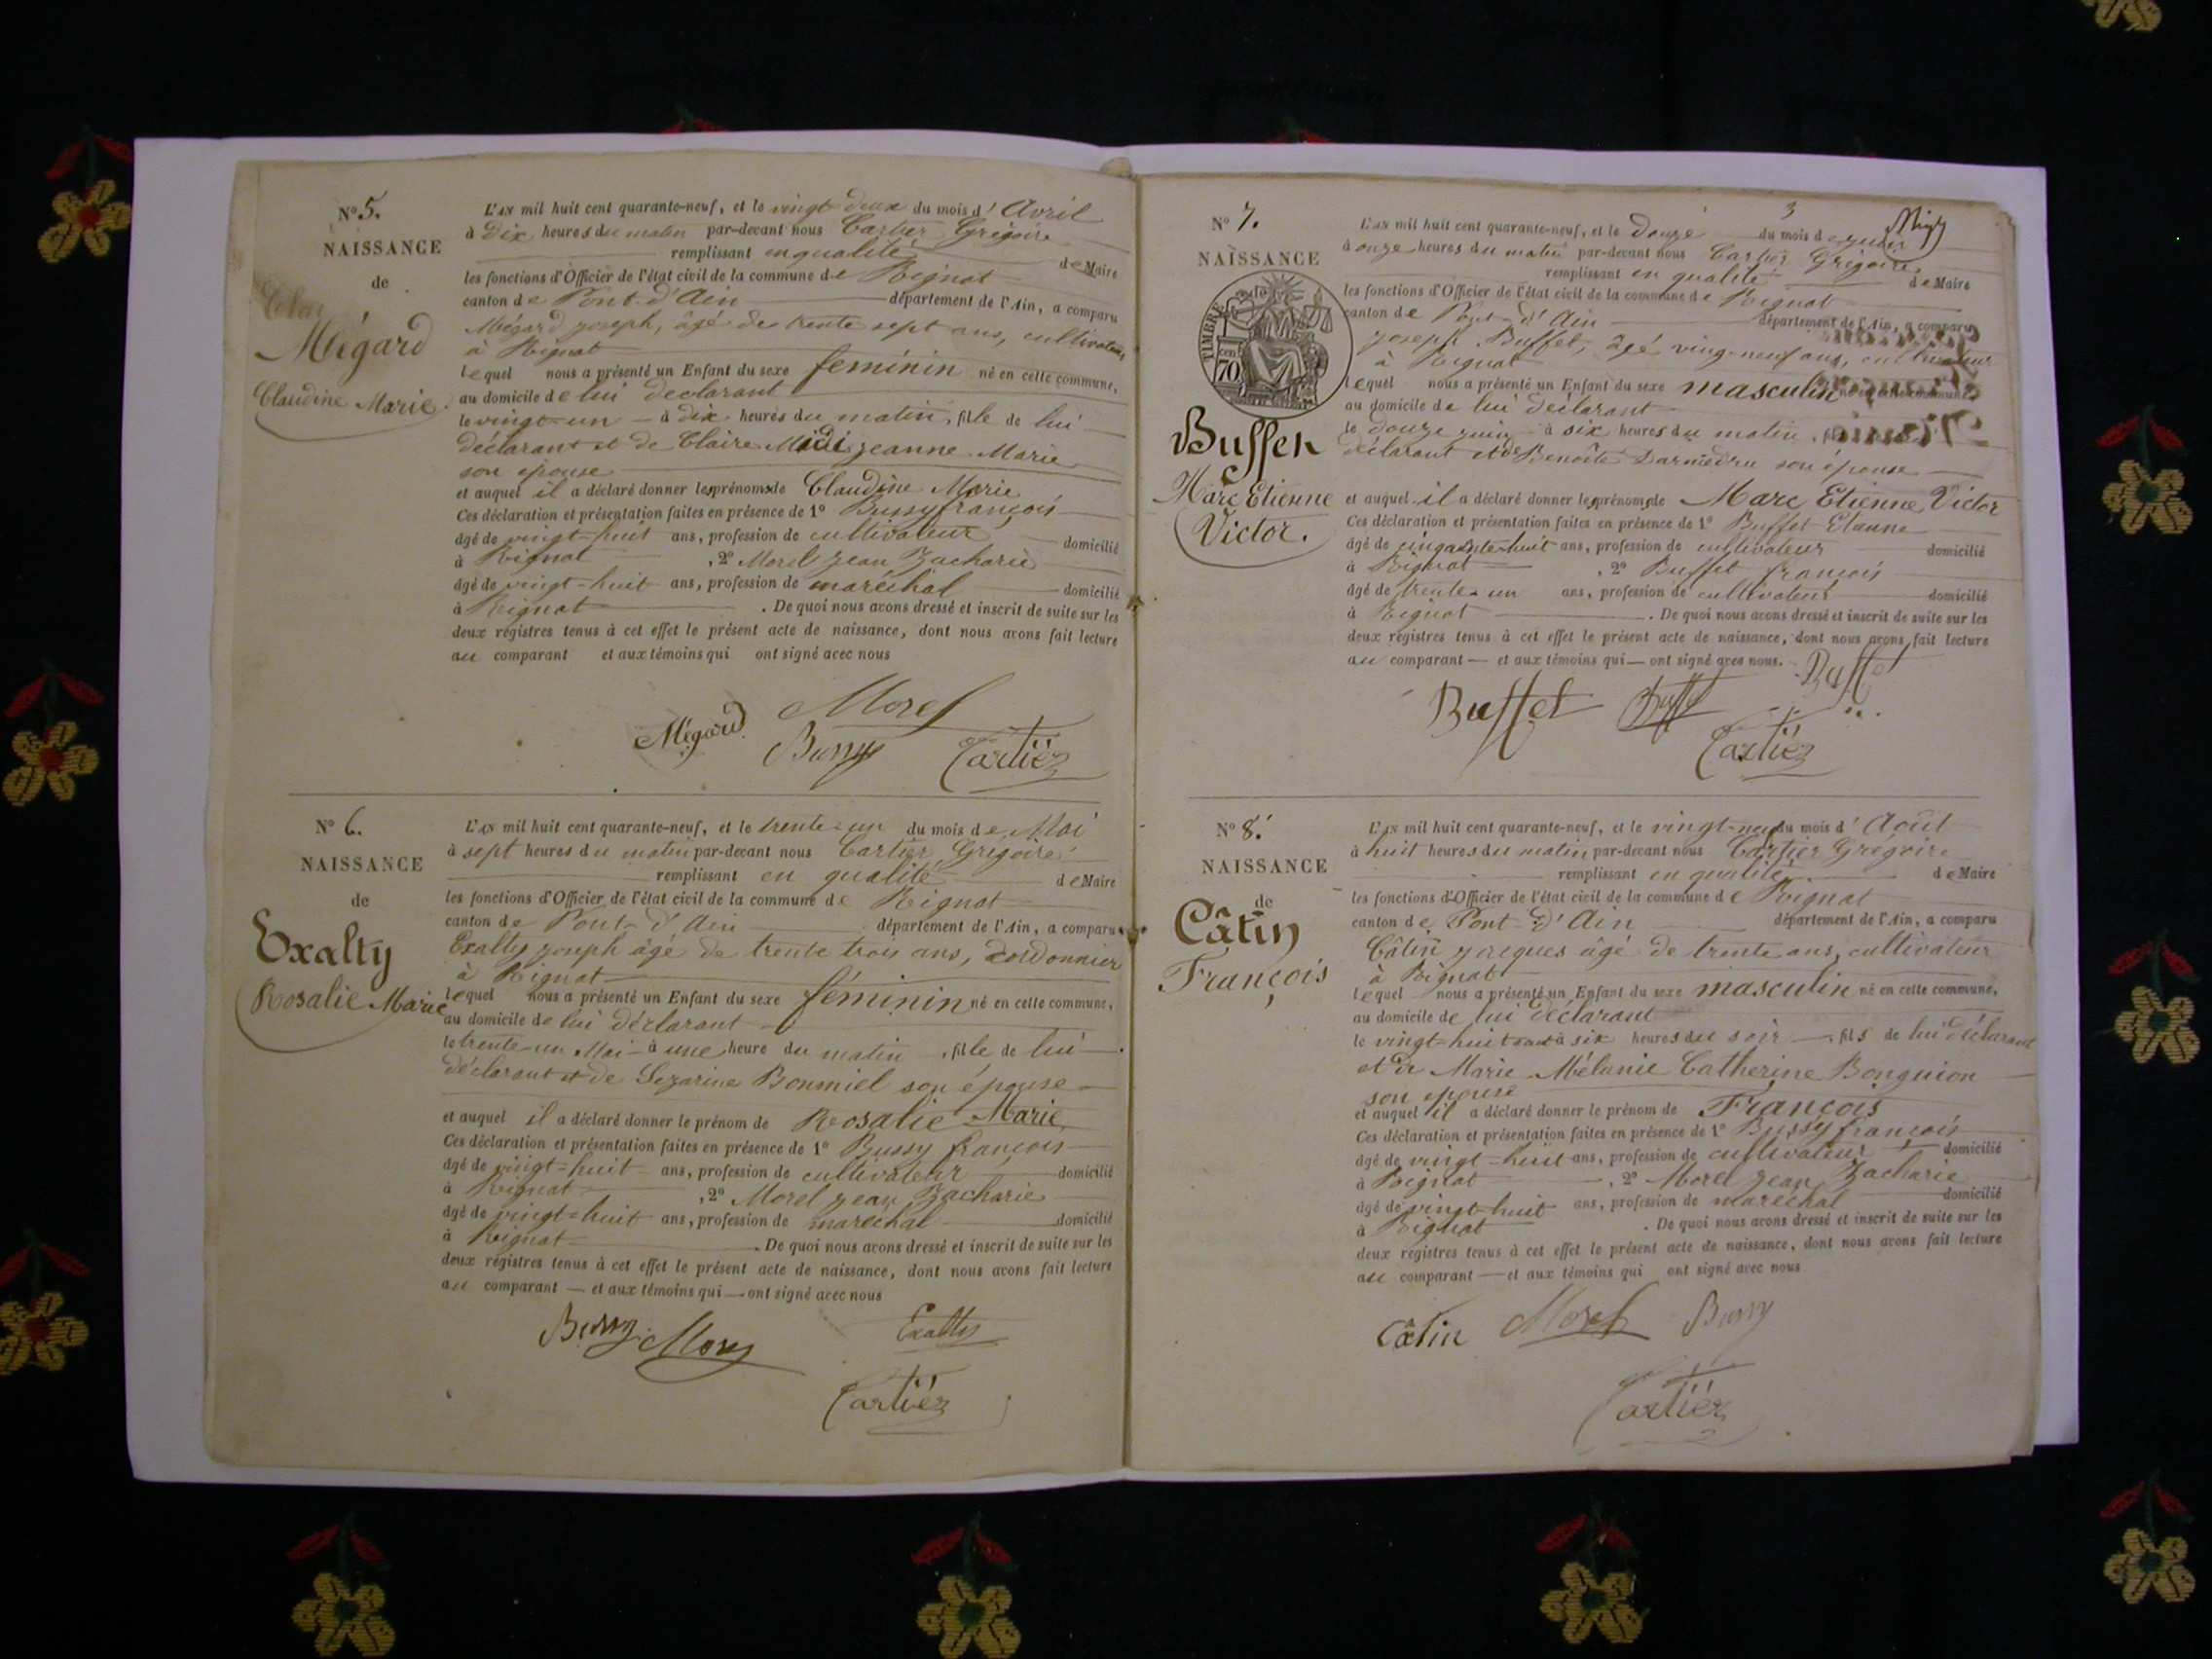 N° 5.
NAISSANCE
de
Mégard
Claudine Marie
L'AN mil huit cent quarante-neuf, et le vingt deux du mois d'Avril
à Dix heures du matin par-devant nous Cartier Grégoire
remplissant en qualité de Maire
les fonctions d'Officier de l'état civil de la commune de Rignat
canton de Pont-d'Ain département de l'Ain, a comparu
Mégard joseph, âgé de trente sept ans, cultivateur
à Rignat
lequel nous a présenté un Enfant du sexe féminin né en cette commune,
au domicile de lui déclarant
le vingt-un à dix heures du matin, fille de lui
déclarant et de Claire jeanne Marie
son épouse
et auquel il a déclaré donner les prénoms de Claudine Marie
Ces déclaration et présentation faites en présence de 1° Bussy françois
âgé de vingt-huit ans, profession de cultivateur domicilié
à Rignat, 2° Morel jean Zacharie
âgé de vingt-huit ans, profession de maréchal domicilié
à Rignat. De quoi nous avons dressé et inscrit de suite sur les
deux régistres tenus à cet effet le présent acte de naissance, dont nous avons fait lecture
au comparant et aux témoins qui ont signé avec nous
Morel
Mégard Bussy Cartier
N° 6.
NAISSANCE
de
Exalty
Rosalie Marie
L'AN mil huit cent quarante-neuf, et le trente-un du mois de Mai
à sept heures du matin par-devant nous Cartier Grégoire
remplissant en qualité de Maire
les fonctions d'Officier de l'état civil de la commune de Rignat
canton de Pont-d'Ain département de l'Ain, a comparu
Exalty joseph âgé de trente trois ans, cordonnier
à Rignat
lequel nous a présenté un Enfant du sexe féminin né en cette commune,
au domicile de lui déclarant
le trente-un Mai à une heure du matin, fille de lui
déclarant et de son épouse
et auquel il a déclaré donner le prénom de Rosalie Marie
Ces déclaration et présentation faites en présence de 1° Bussy françois
âgé de vingt-huit ans, profession de cultivateur domicilié
à Rignat, 2° Morel jean Zacharie
âgé de vingt-huit ans, profession de maréchal domicilié
à Rignat. De quoi nous avons dressé et inscrit de suite sur les
deux régistres tenus à cet effet le présent acte de naissance, dont nous avons fait lecture
au comparant et aux témoins qui ont signé avec nous
Bussy Morel Exalty
Cartier
3
N° 7.
NAISSANCE
TIMBRE
cen 70
Marc Etienne
Victor.
L'AN mil huit cent quarante-neuf, et le Douze du mois de juin
à onze heures du matin par-devant nous Cartier Grégoire
remplissant en qualité de Maire
les fonctions d'Officier de l'état civil de la commune de Rignat
canton de Pont-d'Ain département de l'Ain, a comparu
joseph Buffet, âgé vingt-neuf ans, cultivateur
à Rignat
lequel nous a présenté un Enfant du sexe masculin né en cette commune
au domicile de lui déclarant
le douze juin à six heures du matin,
déclarant et de Benoîte son épouse
et auquel il a déclaré donner les prénoms de Marc Etienne Victor
Ces déclaration et présentation faites en présence de 1° Buffet Etienne
âgé de cinquante-huit ans, profession de cultivateur domicilié
à Rignat, 2° Buffet françois
âgé de trente-un ans, profession de cultivateur domicilié
à Rignat. De quoi nous avons dressé et inscrit de suite sur les
deux régistres tenus à cet effet le présent acte de naissance, dont nous avons fait lecture
au comparant et aux témoins qui ont signé avec nous.
Buffet Buffet Buffet
Cartier
N° 8.
NAISSANCE
de
Câtin
François
L'AN mil huit cent quarante-neuf, et le vingt-neuf du mois d'Août
à huit heures du matin par-devant nous Cartier Grégoire
remplissant en qualité de Maire
les fonctions d'Officier de l'état civil de la commune de Rignat
canton de Pont-d'Ain département de l'Ain, a comparu
Câtin jacques âgé de trente ans, cultivateur
à Rignat
lequel nous a présenté un Enfant du sexe masculin né en cette commune,
au domicile de lui déclarant
le vingt-huit août à six heures du soir, fils de lui déclarant
et de Marie Mélanie Catherine Bonguion
son épouse
et auquel il a déclaré donner le prénom de François
Ces déclaration et présentation faites en présence de 1° Bussy françois
âgé de vingt-huit ans, profession de cultivateur domicilié
à Rignat, 2° Morel jean Zacharie
âgé de vingt-huit ans, profession de maréchal domicilié
à Rignat. De quoi nous avons dressé et inscrit de suite sur les
deux régistres tenus à cet effet le présent acte de naissance, dont nous avons fait lecture
au comparant et aux témoins qui ont signé avec nous
Câtin Morel Bussy
Cartier